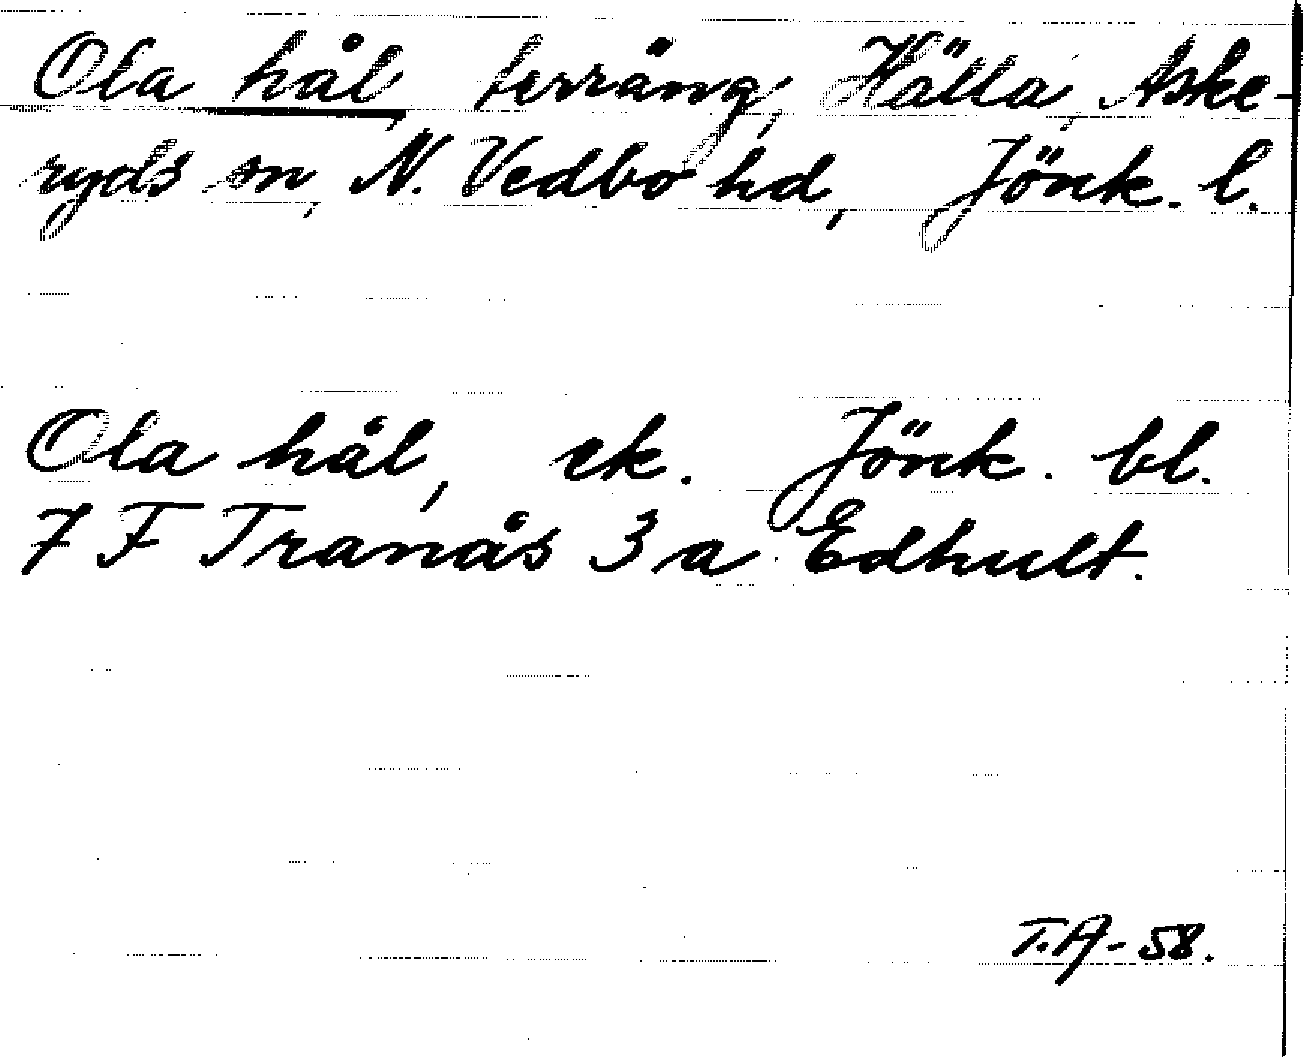 Ola hål, terräng, Hälla, Aske-
ryds sn, N. Vedbo hd, Jönk. l.
Ola hål, ek. Jönk. bl.
7 F Tranås 3 a Edhult.
T.A-58.